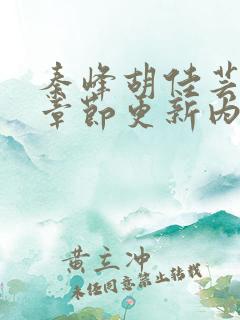 秦峰胡佳芸
章节更新内
黄立冲
未经同意禁止转载